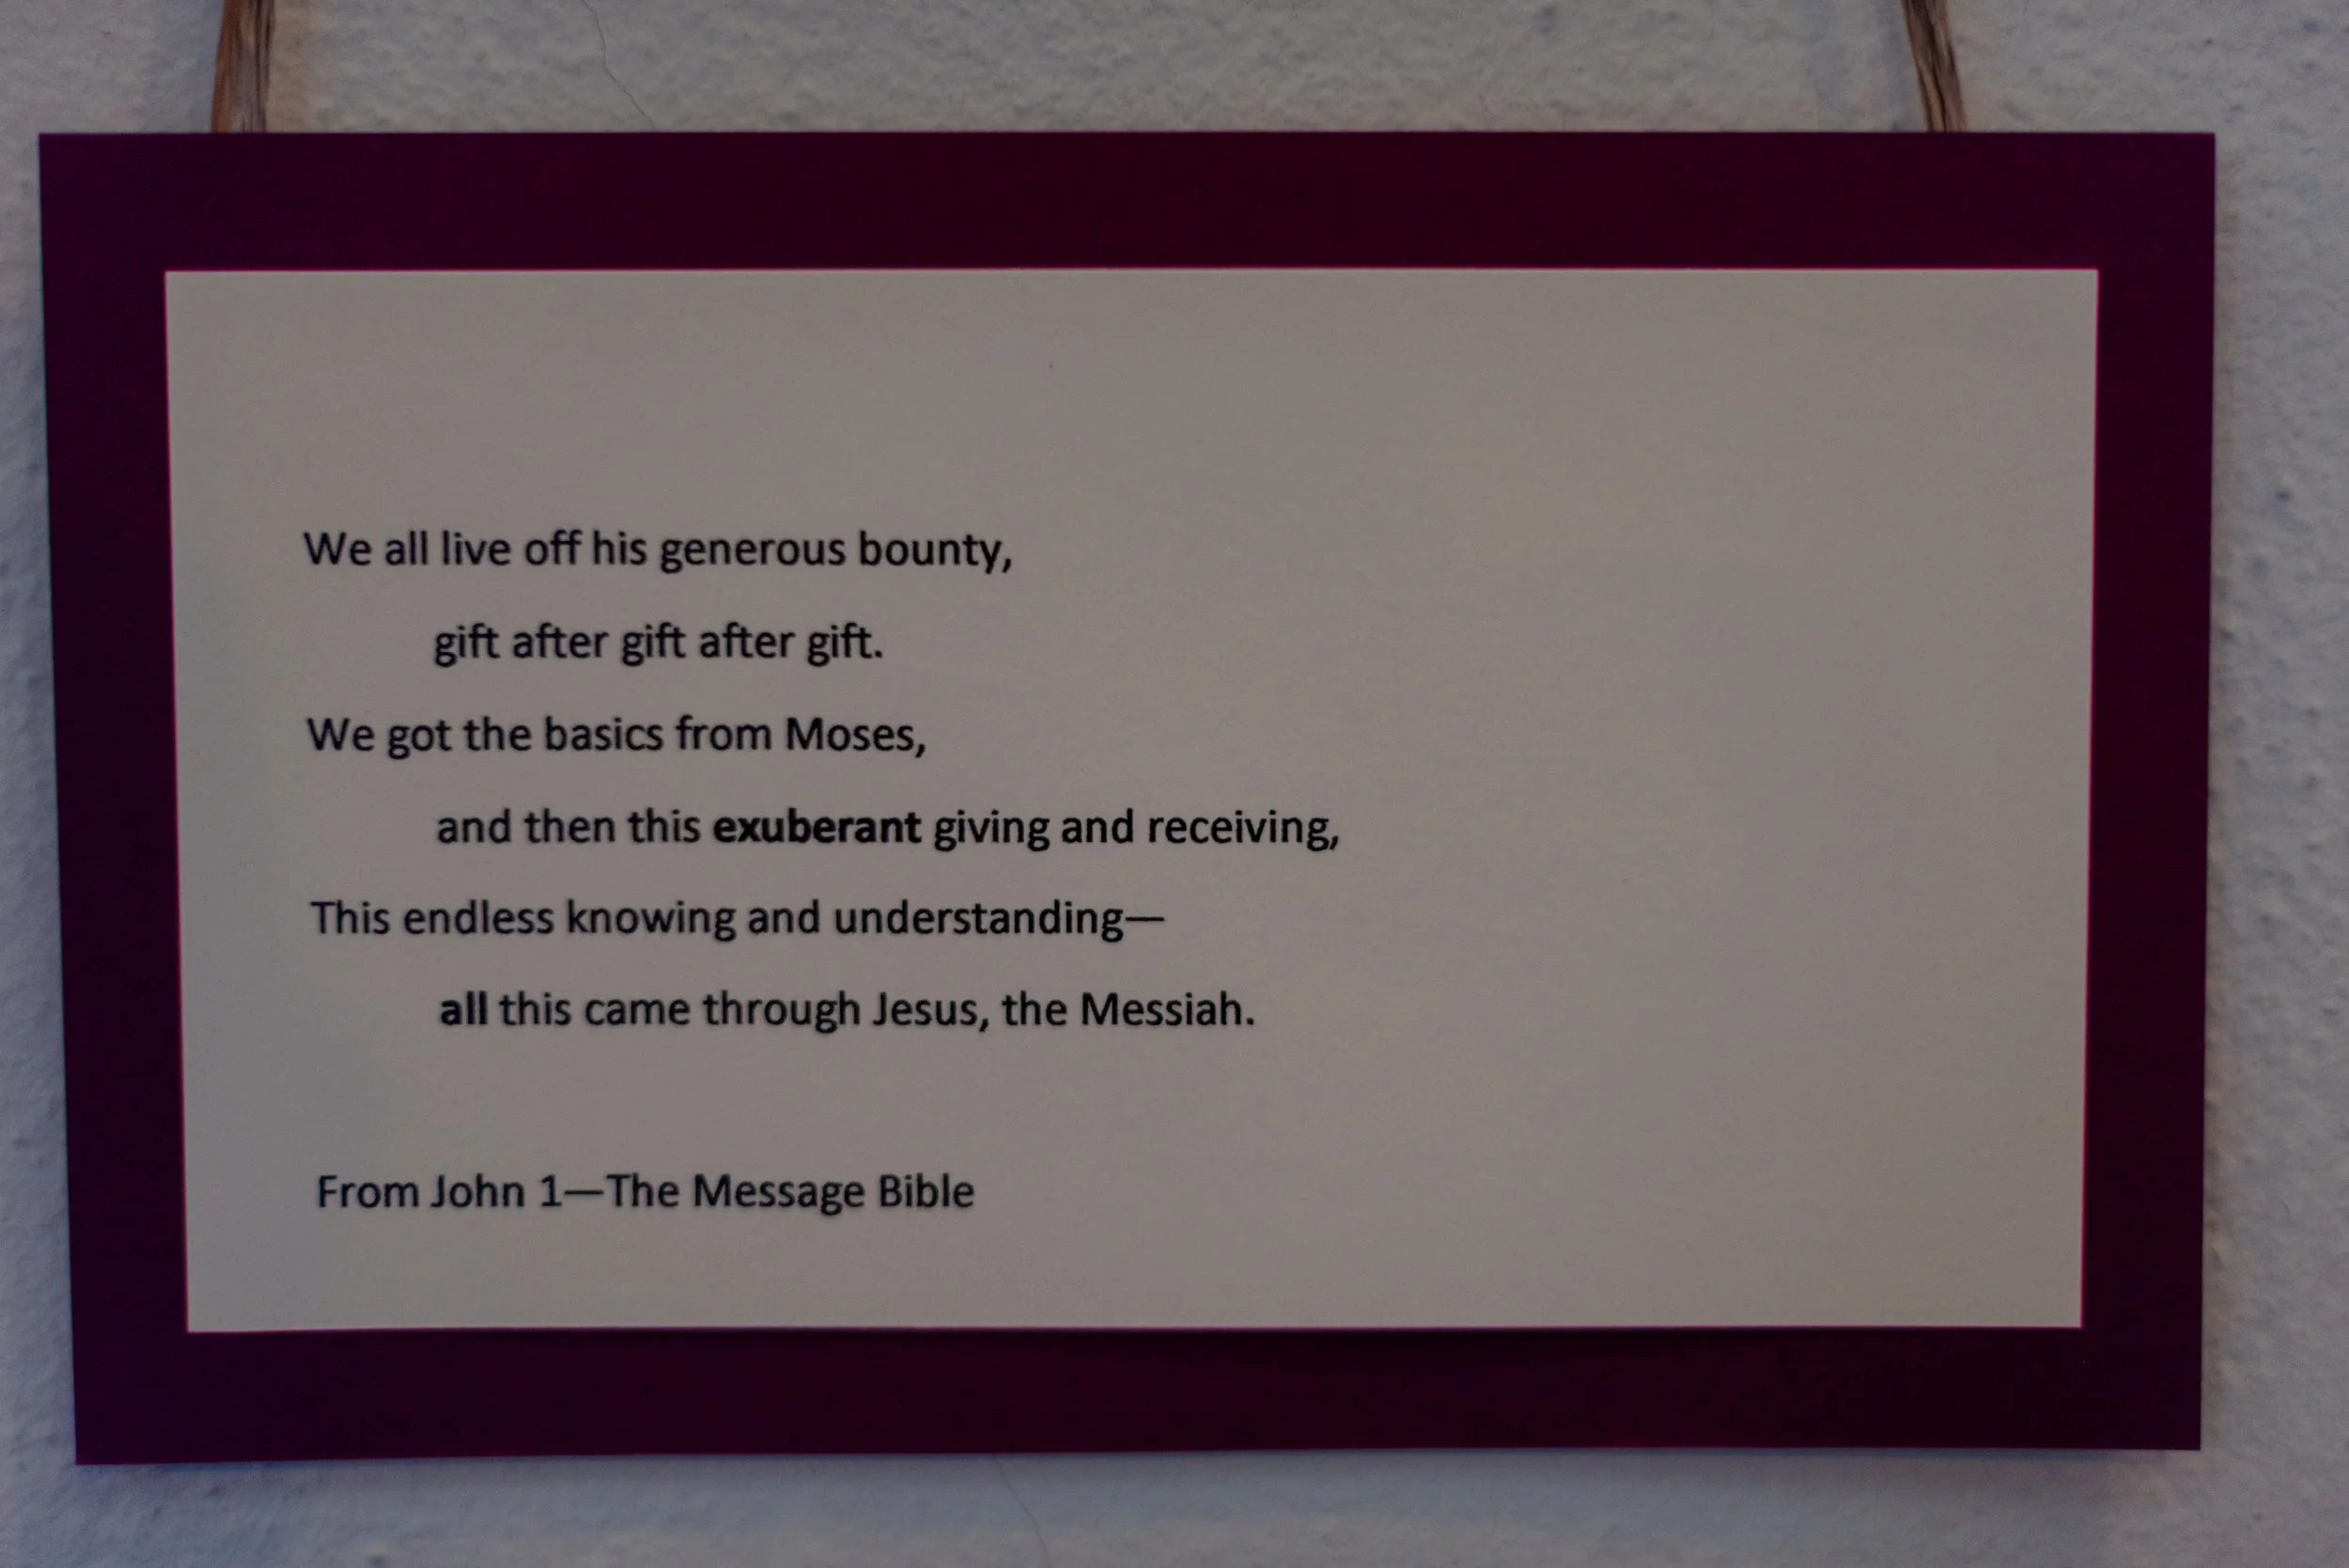 We all live off his generous bounty,
gift after gift after gift.
We got the basics from Moses,
and then this exuberant giving and receiving,
This endless knowing and understanding—
all this came through Jesus, the Messiah.
From John 1—The Message Bible